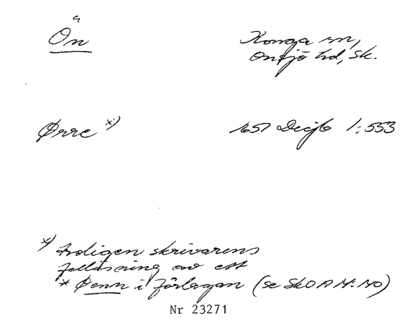 å
Ön
Konga sn,
Onsjö hd, Sk.
Ørre *)
1651 Decjb 1:553
*) Troligen skrivarens
felläsning av ett
* Øenn i förlagan (se SkO A
Nr 23271